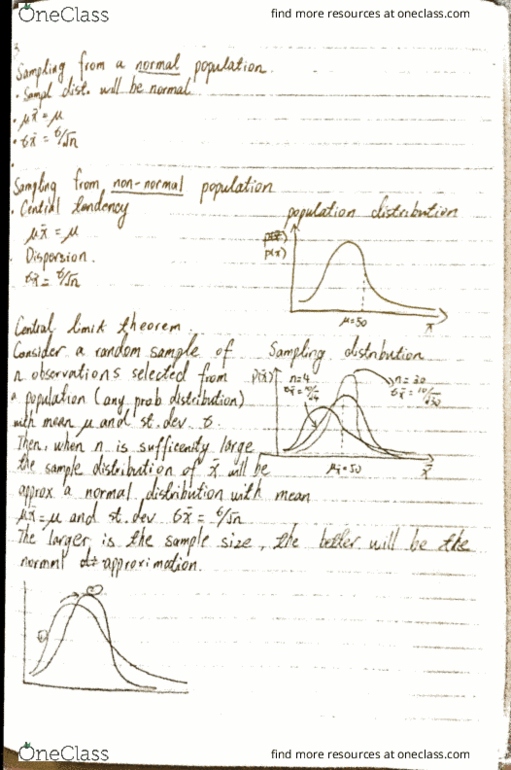 OneClass
find more resources at oneclass.com
Sampling from a normal population.
• Sampl dist. will be normal
• μx̄ = μ
• σx̄ = σ/√n
Sampling from non-normal population
• Central tendency
μx̄ = μ
• Dispersion.
σx̄ = σ/√n
population distribution
p(x)
μ=50
x
Central limit theorem.
Consider a random sample of
n observations selected from
a population (any prob distribution)
with mean μ and st. dev σ.
Then, when n is sufficenity large
the sample distribution of x̄ will be
approx a normal distribution with mean
μx̄=μ and st. dev σx̄ = σ/√n
The larger is the sample size, the better will be the
normal approximation.
Sampling distribution
p(x̄)
n=4
σx̄ = 10/√4
n=30
σx̄ = 10/√30
μx̄=50
x̄
OneClass
find more resources at oneclass.com